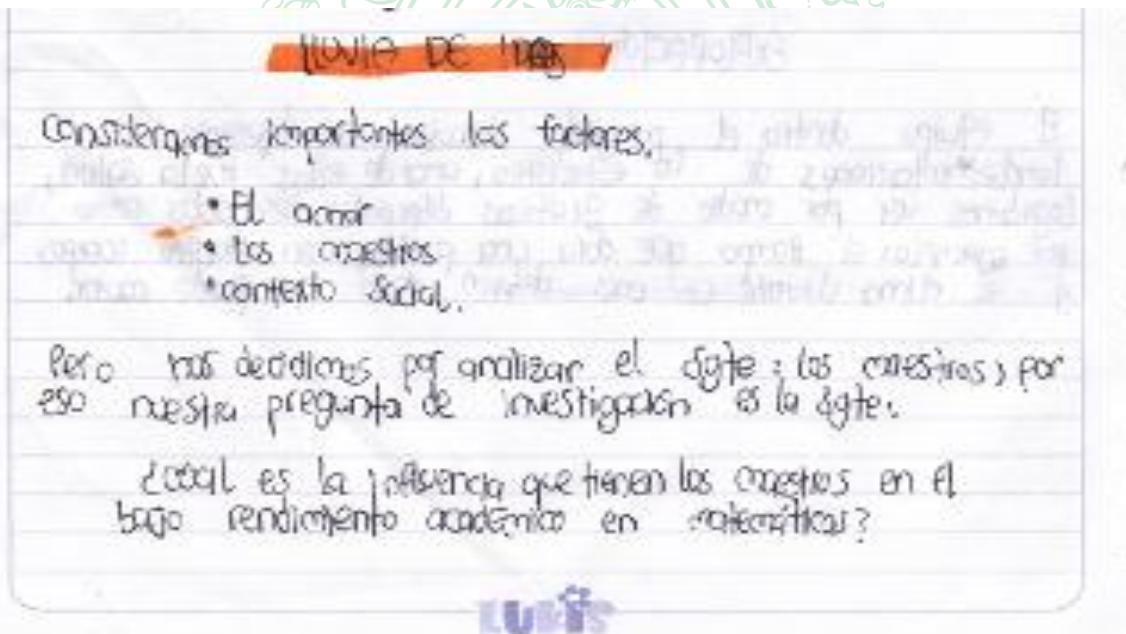 LLUVIA DE IDEAS
Consideramos importantes los factores.
• El amor
• Los maestros
• contexto Social.
Pero nos decidimos por analizar el sgte: los maestros, por
eso nuestra pregunta de investigación es la sgte.
¿Cuál es la influencia que tienen los maestros en el
bajo rendimiento académico en matemáticas?